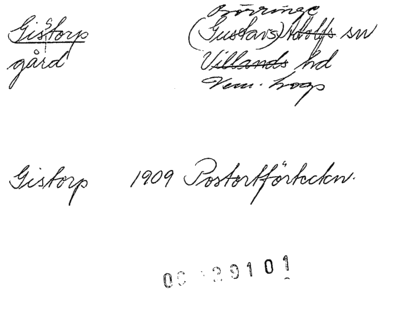 Gistorp
gård
Börringe
(Gustavs) Adolfs sn
Villands hd
Vem. hog
Gistorp 1909 Postortförteckn.
0101